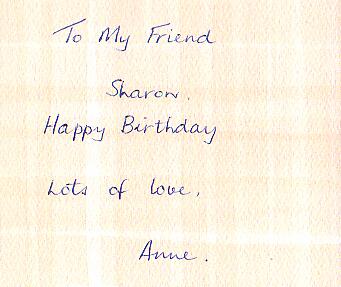 To My Friend
Sharon.
Happy Birthday
Lots of love,
Anne.